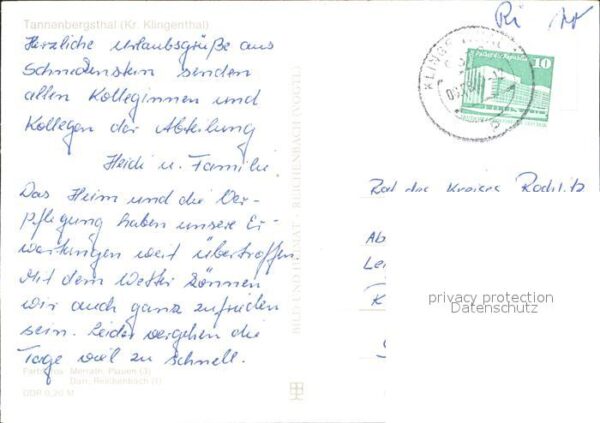 Tannenbergsthal (Kr. Klingenthal)
Herzliche Urlaubsgrüße aus
Schneckenstein senden
allen Kolleginnen und
Kollegen der Abteilung
Heidi u. Familie.
Das Heim und die Ver-
pflegung haben unsere Er-
wartungen weit übertroffen.
Mit dem Wetter können
wir auch ganz zufrieden
sein. Leider vergehen die
Tage viel zu schnell.
Fartofotos: Merrath, Plauen (3)
Darr, Reichenbach (1)
DDR 0,20 M
BILD UND HEIMAT · REICHENBACH (VOGTL)
10
Rat des Kreises Rochlitz
Ab
Le
K
privacy protection
Datenschutz